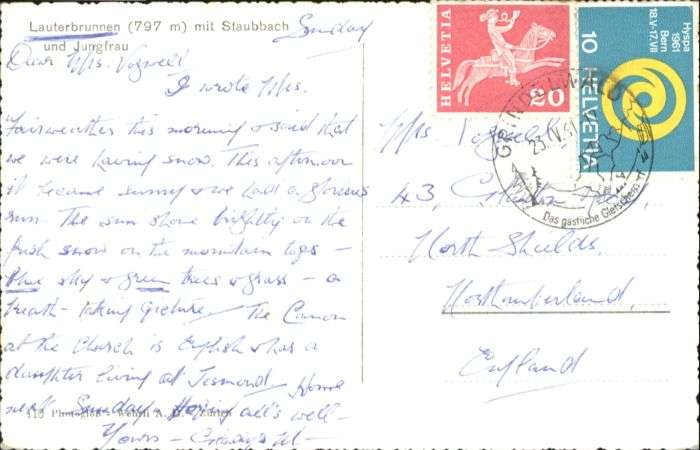 Lauterbrunnen (797 m) mit Staubbach
und Jungfrau
Sunday
Dear Mrs.
I wrote Mrs.
Fairweather this morning & said that
we were having snow. This afternoon
it became sunny & we had a glorious
run. The sun shone brightly on the
fresh snow on the mountain tops –
blue sky & green trees & grass – a
breath-taking picture. The Canon
at the Church is English & has a
daughter living at Jesmond. Home
next Sunday. Hoping all's well –
Yours –
Mrs.
43,
North Shields.
Northumberland,
England
HELVETIA
20
Hyspa
1961
Bern
18.V-17.VII
10
HELVETIA
GRINDELWALD
Das gastliche Gletscherdorf